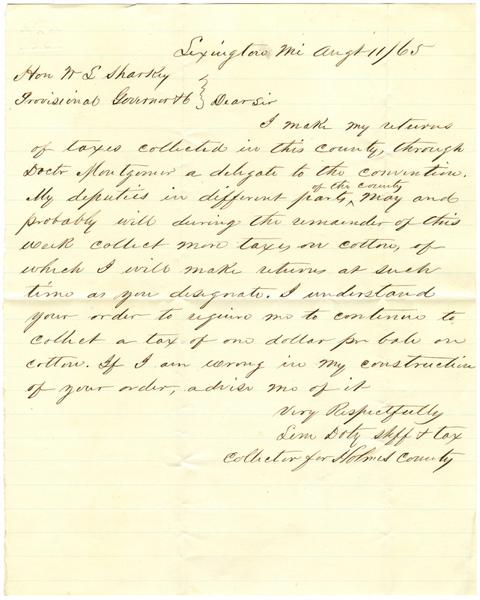 Lexington Mi Augt 11/65
Hon W L Sharkey
Provisional Governor &c } Dear Sir
I make my returns
of taxes collected in this county, through
Doctr Montgomer a delegate to the convention.
My deputies in different parts of the county, may and
probably will during the remainder of this
week collect more taxes on cotton, of
which I will make returns at such
time as you designate. I understand
your order to require me to continue to
collect a tax of one dollar pr bale on
cotton. If I am wrong in my construction
of your order, advise me of it
Very Respectfully
Lem Doty Shff & tax
Collector for Holmes County